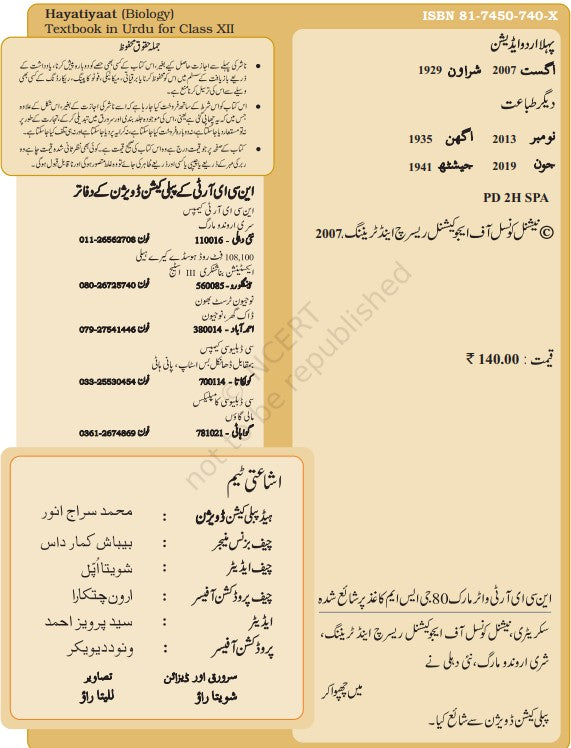 Hayatiyaat (Biology)
Textbook in Urdu for Class XII
ISBN 81-7450-740-X
پہلا اردو ایڈیشن
اگست 2007 شراون 1929
دیگر طباعت
نومبر 2013 اگھن 1935
جون 2019 جیشٹھ 1941
PD 2H SPA
© نیشنل کونسل آف ایجوکیشنل ریسرچ اینڈ ٹریننگ، 2007
قیمت : 140.00 ₹
این سی ای آر ٹی واٹر مارک 80 جی ایس ایم کاغذ پر شائع شدہ
سکریٹری، نیشنل کونسل آف ایجوکیشنل ریسرچ اینڈ ٹریننگ،
شری اروندو مارگ، نئی دہلی نے
میں چھپوا کر
پبلی کیشن ڈویژن سے شائع کیا۔
جملہ حقوق محفوظ
• ناشر کی پہلے سے اجازت حاصل کیے بغیر، اس کتاب کے کسی بھی حصے کو دوبارہ پیش کرنا، یادداشت کے
ذریعے بازیافت کے سسٹم میں اس کو محفوظ کرنا یا برقیاتی، میکانیکی، فوٹو کاپینگ، ریکارڈنگ کے کسی بھی
وسیلے سے اس کی ترسیل کرنا منع ہے۔
• اس کتاب کو اس شرط کے ساتھ فروخت کیا جا رہا ہے کہ اسے ناشر کی اجازت کے بغیر، اس شکل کے علاوہ
جس میں کہ یہ چھاپی گئی ہے یعنی، اس کی موجودہ جلد بندی اور سرورق میں تبدیلی کر کے، تجارت کے طور پر
نہ تو مستعار دیا جا سکتا ہے، نہ دوبارہ فروخت کیا جا سکتا ہے، نہ کرایہ پر دیا جا سکتا ہے اور نہ ہی تلف کیا جا سکتا ہے۔
• کتاب کے صفحہ پر جو قیمت درج ہے وہ اس کتاب کی صحیح قیمت ہے۔ کوئی بھی نظر ثانی شدہ قیمت چاہے وہ
ربر کی مہر کے ذریعے یا چیپی یا کسی اور ذریعے ظاہر کی جائے تو وہ غلط متصور ہوگی اور ناقابل قبول ہوگی۔
این سی ای آر ٹی کے پبلی کیشن ڈویژن کے دفاتر
این سی ای آر ٹی کیمپس
سری اروندو مارگ
نئی دہلی - 110016 فون 011-26562708
108,100 فٹ روڈ ہوسڈے کیرے ہیلی
ایکسٹینشن بناشنکری III اسٹیج
بنگلورو - 560085 فون 080-26725740
نوجیون ٹرسٹ بھون
ڈاک گھر، نوجیون
احمد آباد - 380014 فون 079-27541446
سی ڈبلیو سی کیمپس
بمقابل ڈھانکل بس اسٹاپ، پانی ہاٹی
کولکاتا - 700114 فون 033-25530454
سی ڈبلیو سی کا مپلیکس
مالی گاؤں
گواہاٹی - 781021 فون 0361-2674869
اشاعتی ٹیم
ہیڈ پبلی کیشن ڈویژن : محمد سراج انور
چیف بزنس منیجر : بیباش کمار داس
چیف ایڈیٹر : شویتا اُپّل
چیف پروڈکشن آفیسر : ارون چتکارا
ایڈیٹر : سید پرویز احمد
پروڈکشن آفیسر : ونود دیویکر
سرورق اور ڈیزائن تصاویر
شویتا راؤ للیتا راؤ
© NCERT
not to be republished